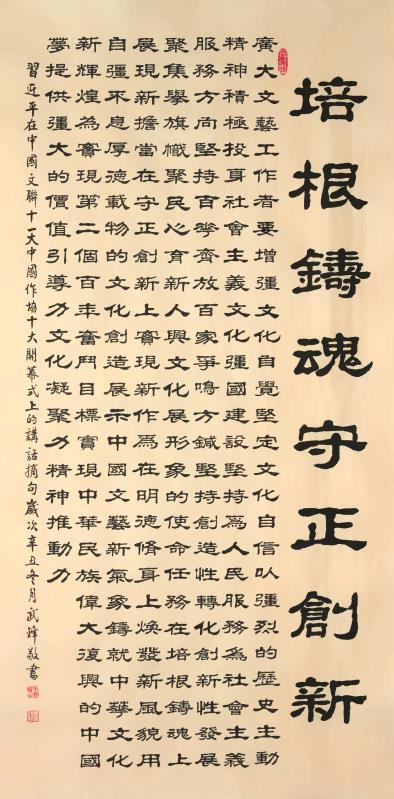 培根鑄魂守正創新
廣大文藝工作者要增彊文化自覺堅定文化自信以彊烈的歷史主動
精神積極投身社會主義文化彊國建設堅持爲人民服務爲社會主義
服務方向堅持百花齊放百家爭鳴方鍼堅持創造性轉化創新性發展
聚焦舉旗幟聚民心育新人興文化展形象的使命任務在培根鑄魂上
展現新擔當在守正創新上實現新作爲在明德脩身上煥發新風貌用
自彊不息厚德載物的文化創造展示中國文藝新氣象鑄就中華文化
新輝煌為實現第二個百年奮鬥目標實現中華民族偉大復興的中國
夢提供彊大的價值引導力文化凝聚力精神推動力
習近平在中國文聯十一大中國作協十大開幕式上的講話摘句歲次辛丑冬月武鋒敬書